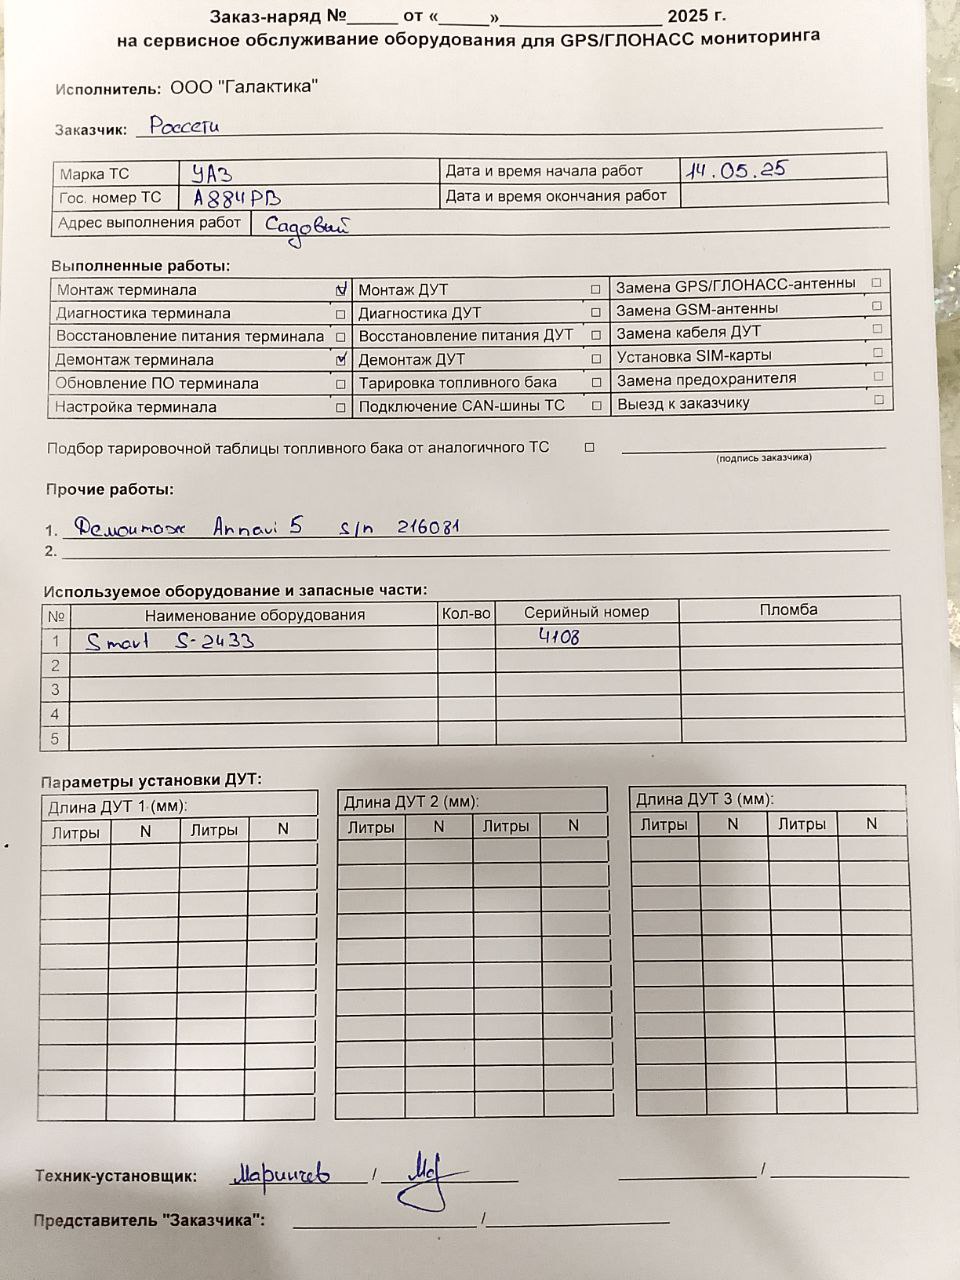 Заказ-наряд №_____ от «_____»________________ 2025 г.
на сервисное обслуживание оборудования для GPS/ГЛОНАСС мониторинга
Исполнитель: ООО "Галактика"
Заказчик: Россети
Марка ТС УАЗ Дата и время начала работ 14.05.25
Гос. номер ТС А884РВ Дата и время окончания работ
Адрес выполнения работ Садовый
Выполненные работы:
Монтаж терминала ☑ Монтаж ДУТ □ Замена GPS/ГЛОНАСС-антенны □
Диагностика терминала □ Диагностика ДУТ □ Замена GSM-антенны □
Восстановление питания терминала □ Восстановление питания ДУТ □ Замена кабеля ДУТ □
Демонтаж терминала ☑ Демонтаж ДУТ □ Установка SIM-карты □
Обновление ПО терминала □ Тарировка топливного бака □ Замена предохранителя □
Настройка терминала □ Подключение CAN-шины ТС □ Выезд к заказчику □
Подбор тарировочной таблицы топливного бака от аналогичного ТС □
(подпись заказчика)
Прочие работы:
1. Демонтаж Annavi 5 s/n 216081
2.
Используемое оборудование и запасные части:
№ Наименование оборудования Кол-во Серийный номер Пломба
1 Smart S-2433 4108
2
3
4
5
Параметры установки ДУТ:
Длина ДУТ 1 (мм): Длина ДУТ 2 (мм): Длина ДУТ 3 (мм):
Литры N Литры N Литры N Литры N Литры N Литры N
Техник-установщик: / /
Представитель "Заказчика": /